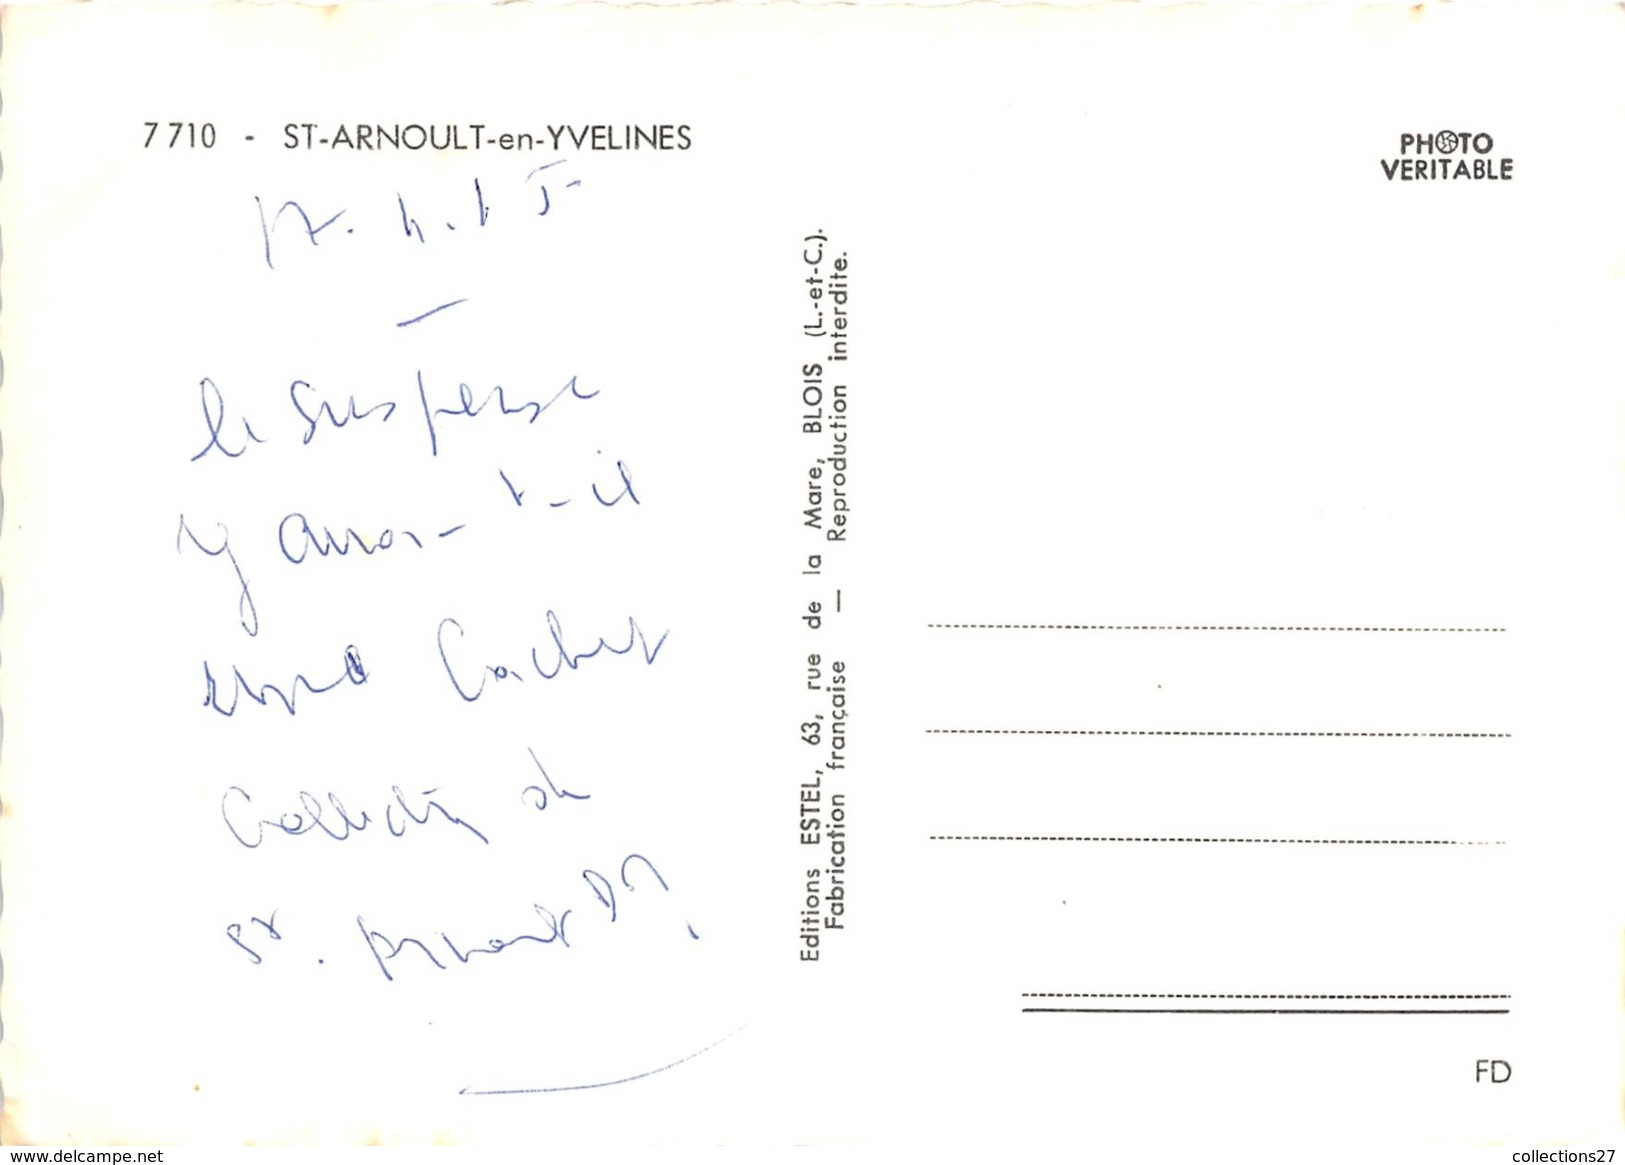 7710 - ST-ARNOULT-en-YVELINES
PHOTO
VERITABLE
le suspense
y aura-t-il
cachet
collection de
St. Arnoult
Editions ESTEL, 63, rue de la Mare, BLOIS (L.-et-C.).
Fabrication française — Reproduction interdite.
FD
www.delcampe.net
collections27